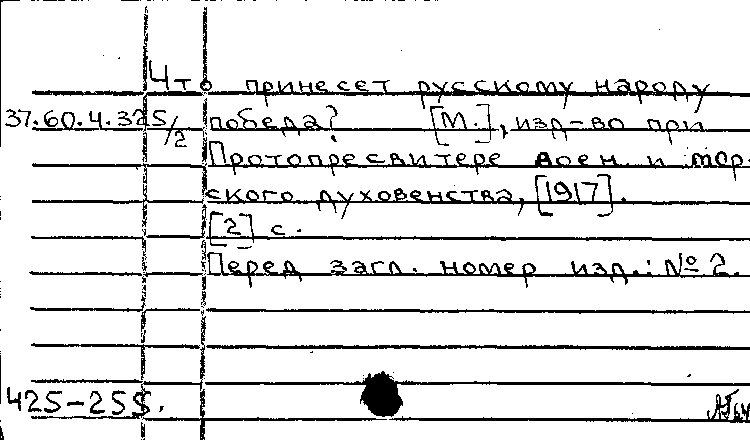 Что принесет русскому народу
37.60.4.325/2 победа? [М.], изд-во при
Протопресвитере воен. и мор-
ского духовенства, [1917].
[2] с.
Перед загл. номер изд.: № 2.
425-255.